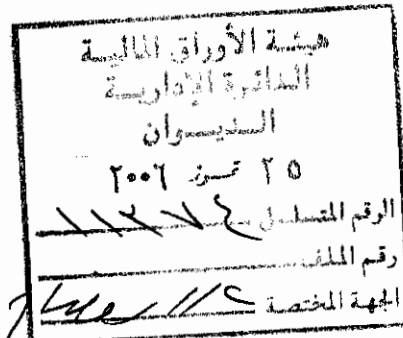 هيئة الأوراق المالية
الدائرة الإدارية
الديوان
٢٥ تموز ٢٠٠٦
الرقم المتسلسل
رقم الملف
الجهة المختصة